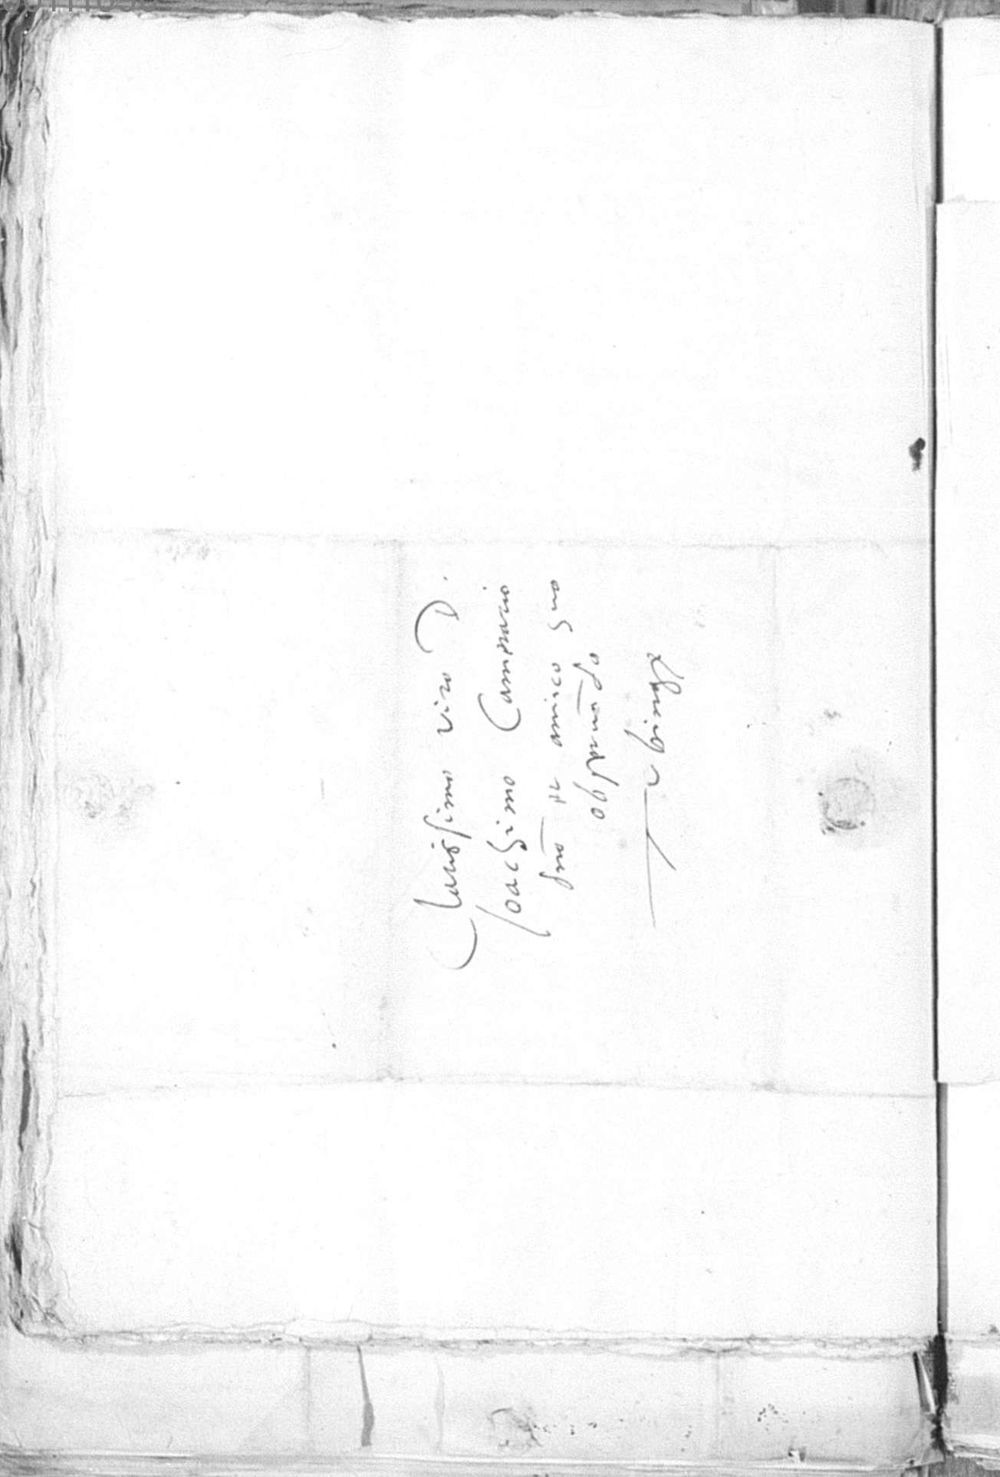 Clarissimo viro D.
Joachimo Camerario
dnō et amico suo
obseruādo
Tubingę